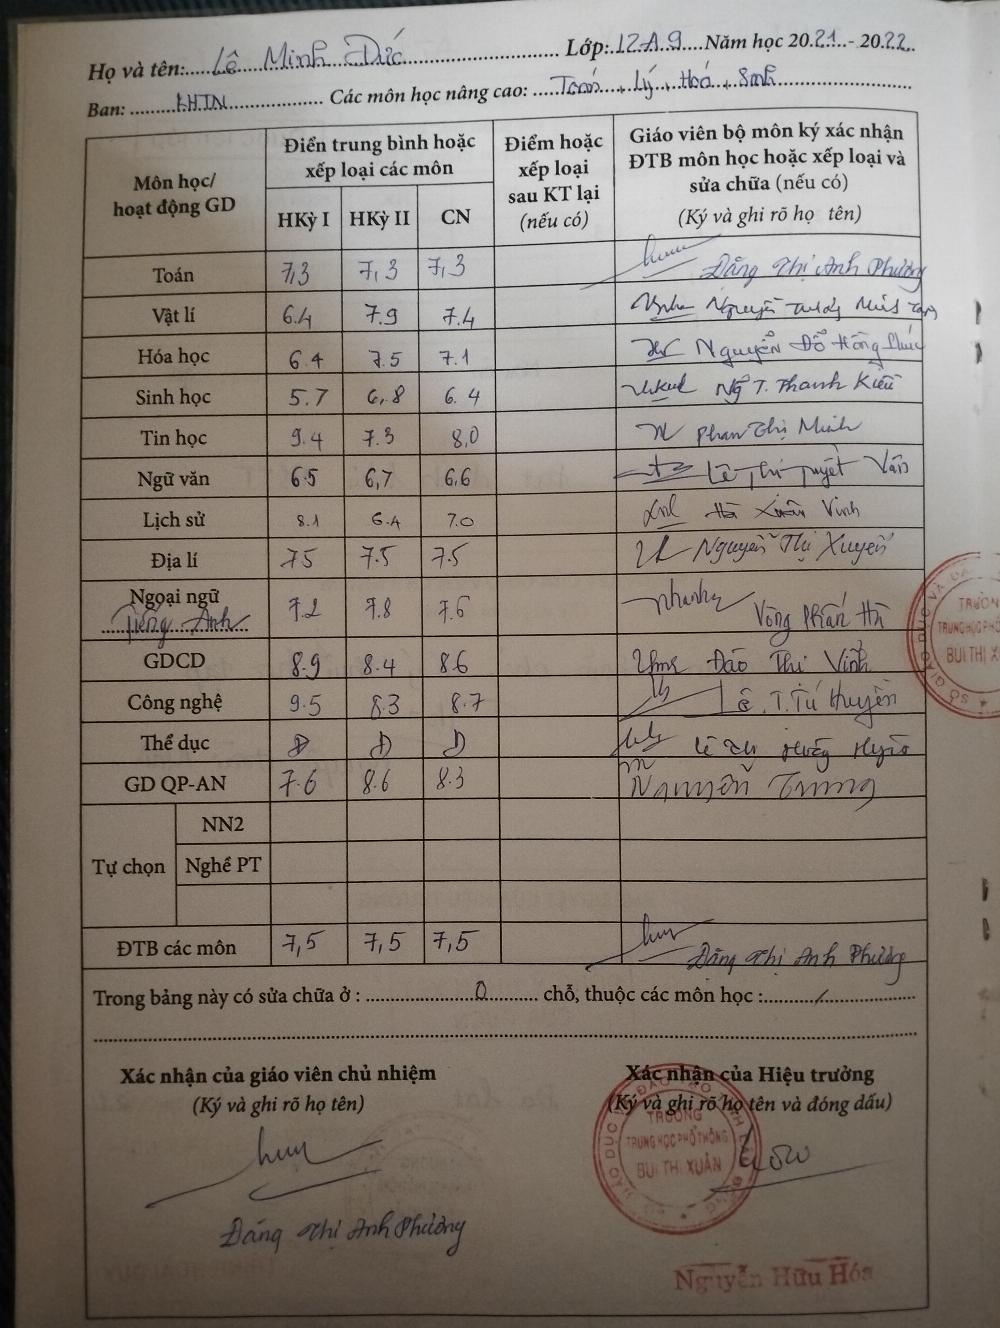 Họ và tên: Lê Minh Đức Lớp: 12A9 Năm học 2021 - 2022
Ban: KHTN Các môn học nâng cao: Toán, Lý, Hoá, Sinh
Môn học/ hoạt động GD
Điển trung bình hoặc xếp loại các môn
HKỳ I HKỳ II CN
Điểm hoặc xếp loại sau KT lại (nếu có)
Giáo viên bộ môn ký xác nhận ĐTB môn học hoặc xếp loại và sửa chữa (nếu có)
(Ký và ghi rõ họ tên)
Toán 7,3 7,3 7,3 Đặng Thị Anh Phương
Vật lí 6.4 7.9 7.4 Nguyễn
Hóa học 6.4 7.5 7.1 Nguyễn Đỗ Hồng
Sinh học 5.7 6,8 6.4 Ng T. Thanh Kiều
Tin học 9.4 7.3 8,0 Phan Thị Minh
Ngữ văn 6.5 6,7 6,6 Lê Thị Tuyết Vân
Lịch sử 8.1 6.4 7.0 Hà Xuân Vinh
Địa lí 7.5 7.5 7.5 Nguyễn Thị Xuyến
Ngoại ngữ Tiếng Anh 7.2 7.8 7.6 Vòng
GDCD 8.9 8.4 8.6 Đào Thị Vinh
Công nghệ 9.5 8.3 8.7 Lê .T.Tú Huyền
Thể dục Đ Đ Đ Lê
GD QP-AN 7.6 8.6 8.3 Nguyễn Trung
Tự chọn
NN2
Nghề PT
ĐTB các môn 7,5 7,5 7,5 Đặng Thị Anh Phương
Trong bảng này có sửa chữa ở : 0 chỗ, thuộc các môn học : /
Xác nhận của giáo viên chủ nhiệm Xác nhận của Hiệu trưởng
(Ký và ghi rõ họ tên) (Ký và ghi rõ họ tên và đóng dấu)
TRƯỜNG
TRUNG HỌC PHỔ THÔNG
BÙI THỊ XUÂN
Đặng Thị Anh Phương
Nguyễn Hữu Hóa